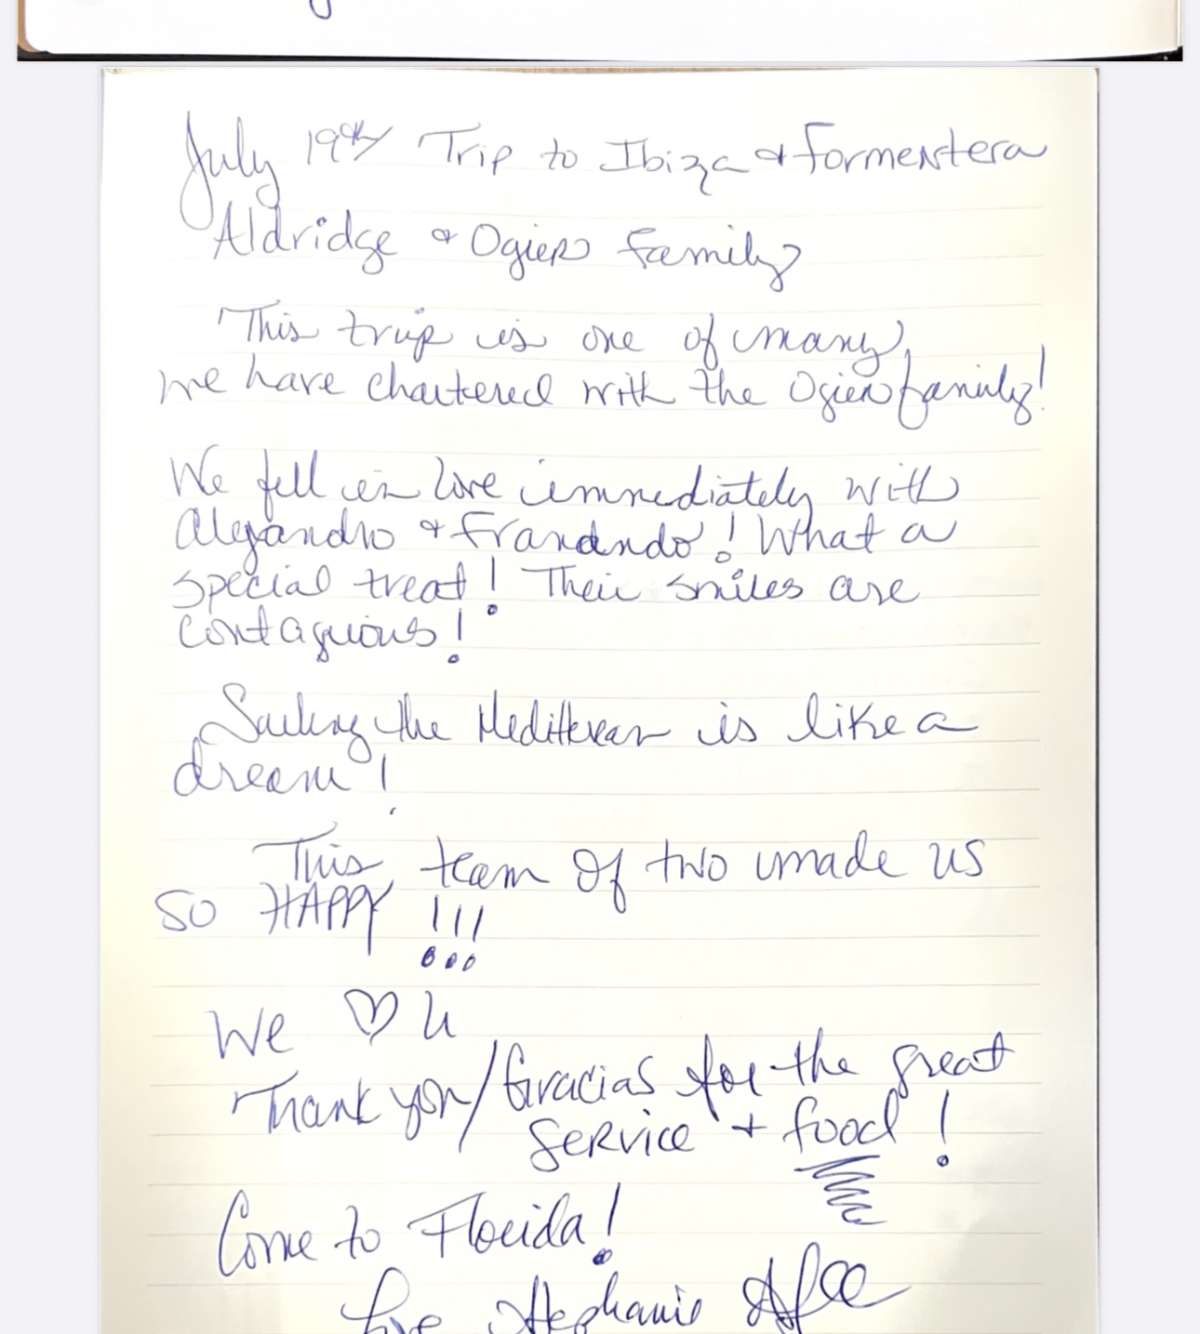 July 19th Trip to Ibiza & Formentera
Aldridge & Ogier Family
This trip is one of many
we have chartered with the Ogier family!
We fell in love immediately with
Alejandro & Franandndo! What a
special treat! Their smiles are
contaguious!
Sailing the Mediterean is like a
dream!
This team of two made us
SO HAPPY !!!
We ♡ U
Thank you/Gracias for the great
Service + food!
Come to Florida!
Love Stephanie